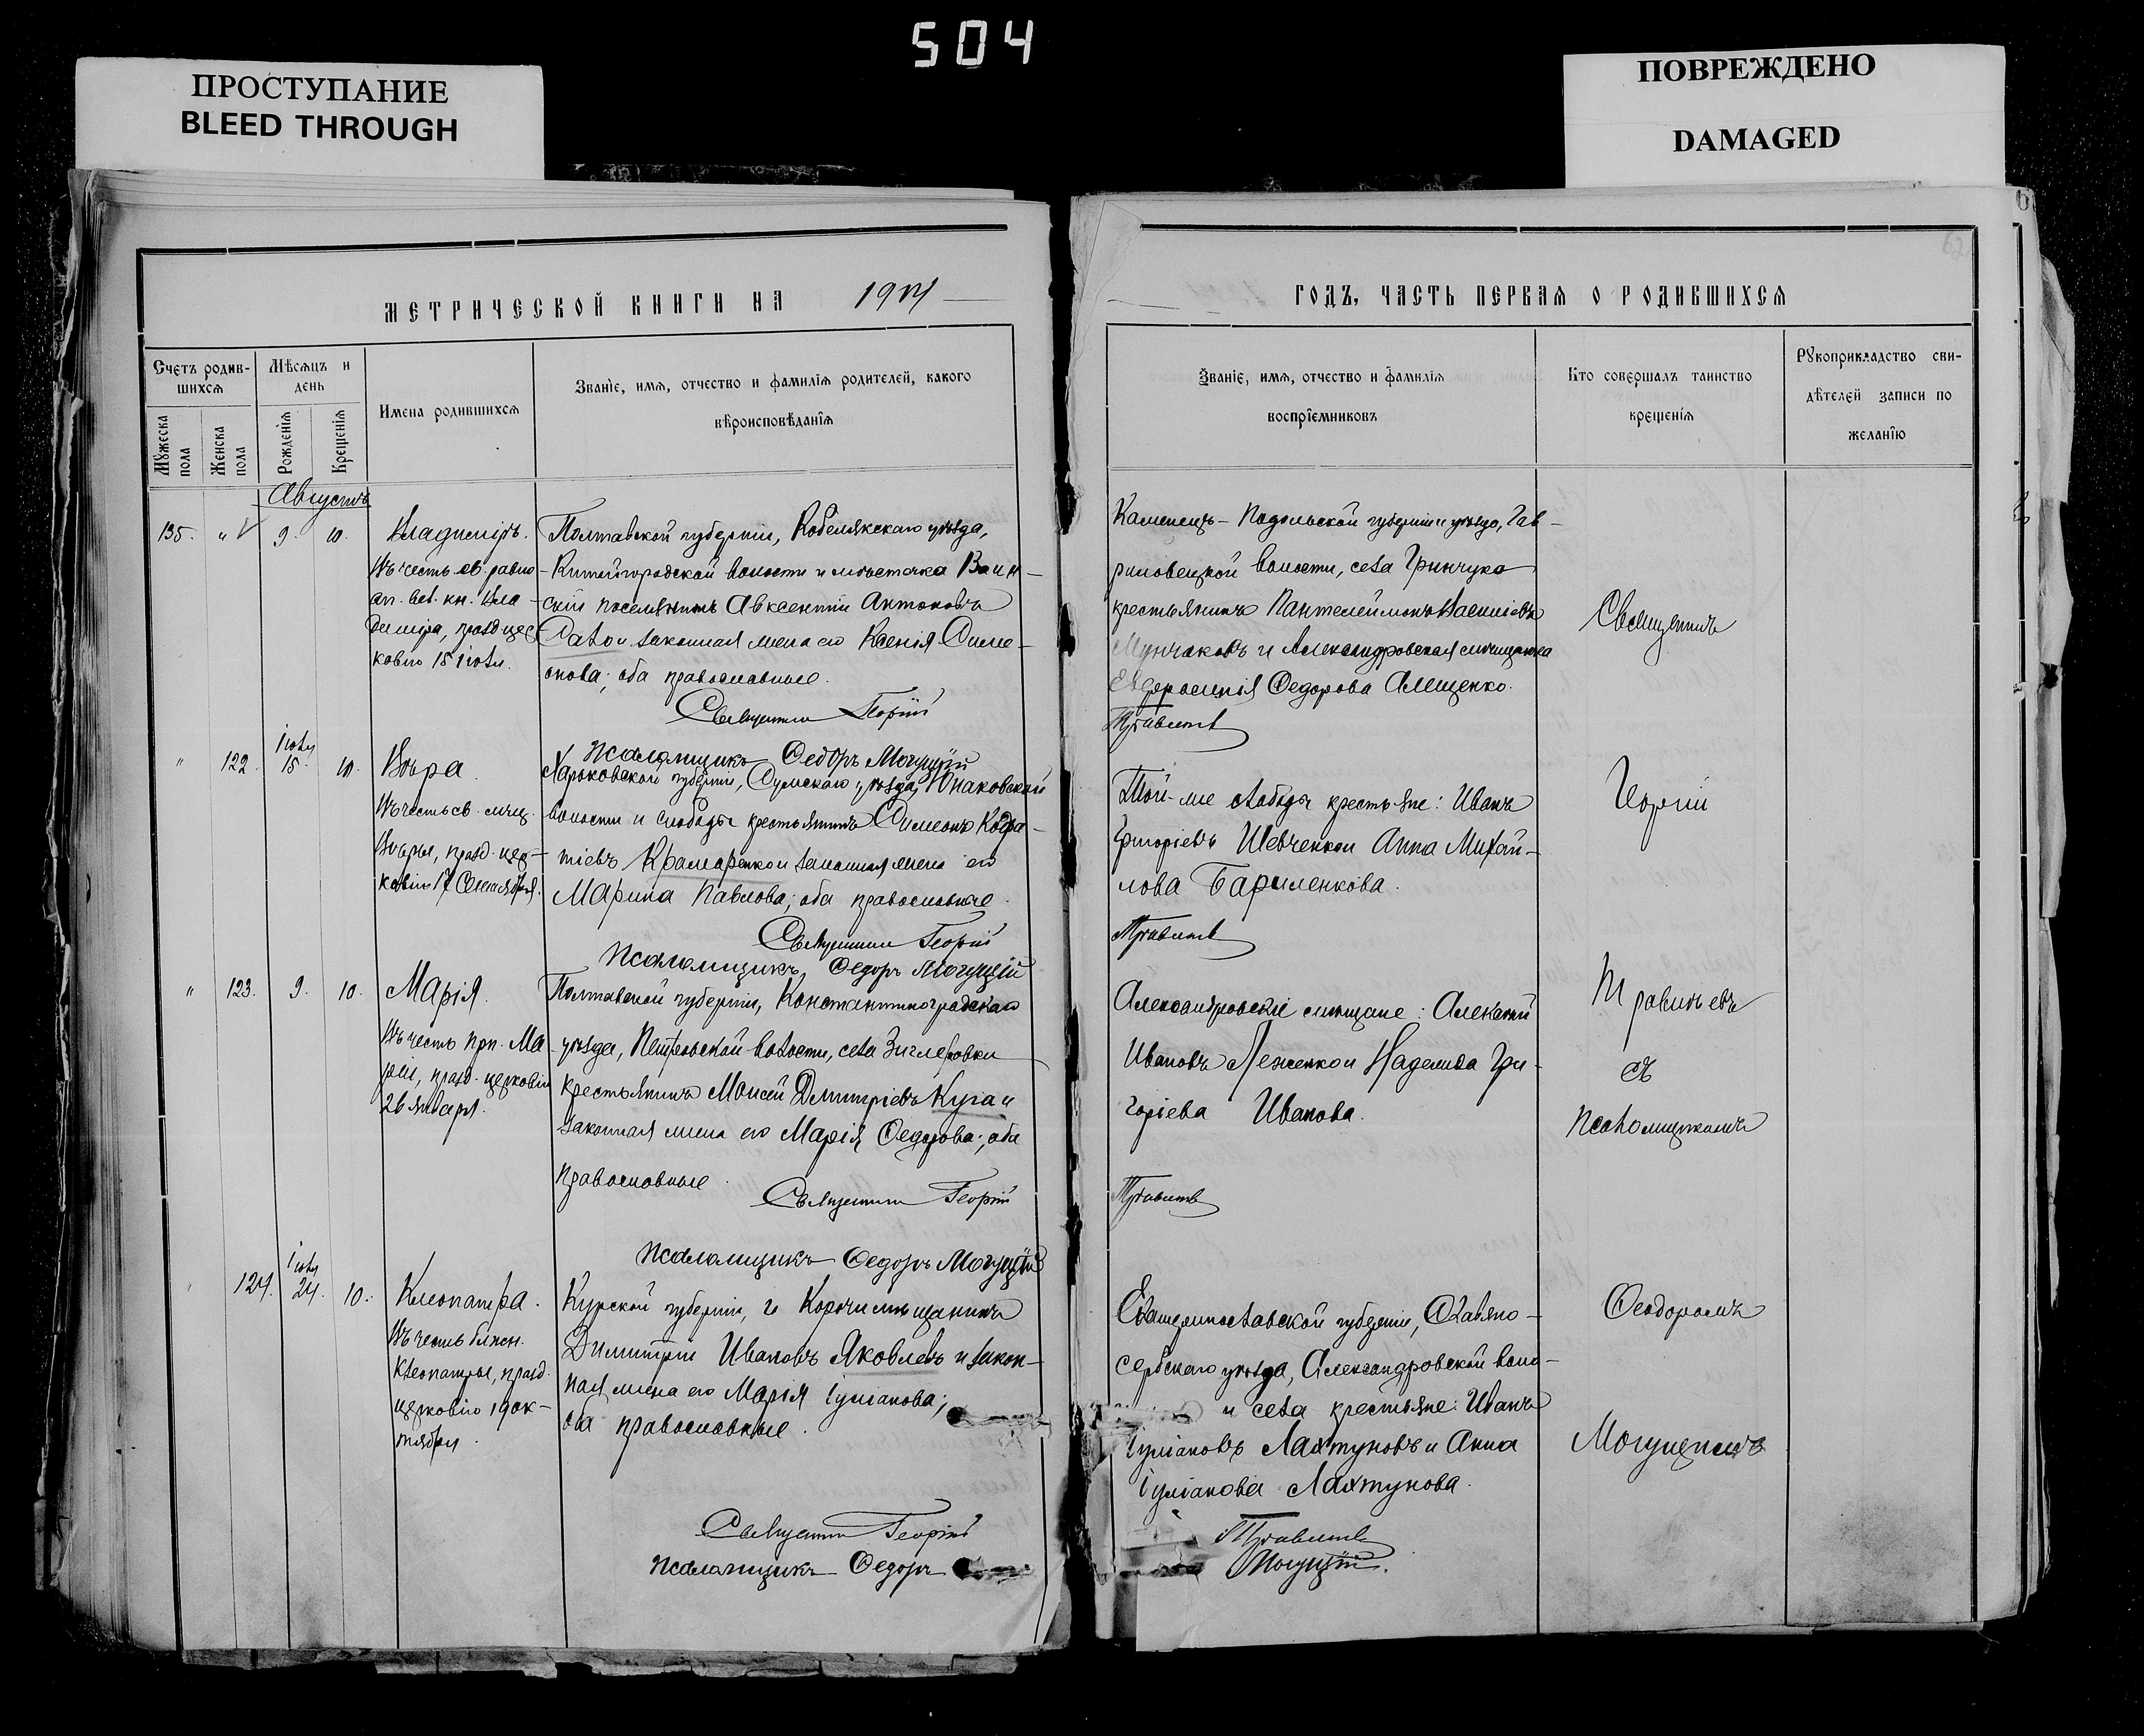 504
ПРОСТУПАНИЕ
BLEED THROUGH
ПОВРЕЖДЕНО
DAMAGED
МЕТРИЧЕСКОЙ КНИГИ НА
ГОДЪ, ЧАСТЬ ПЕРВАЯ О РОДИВШИХСЯ
Счетъ родив-
шихся
Мѣсяцъ и
день
Мужеска
пола
Женска
пола
Рожденія
Крещенія
Имена родившихся
Званіе, имя, отчество и фамилія родителей, какого
вѣроисповѣданія
Званіе, имя, отчество и фамилія
воспріемниковъ
Кто совершалъ таинство
крещенія
Рукоприкладство сви-
дѣтелей записи по
желанію
Августъ
135. " 9. 10.
Владиміръ.
Въ честь св. равно-
ап. вел. кн. Вла-
диміра, празд. цер-
ковію 15 іюля.
Полтавской губерніи, Кобелякскаго уѣзда,
Китайгородской волости и мѣстечка
поселянинъ Авксентій Антоновъ
законная жена его Ксенія Симе-
онова; оба православные.
Священникъ Георгій
Псаломщикъ Ѳедоръ Могуцій
Каменецъ-Подольской губерніи и уѣзда, Гав-
риловецкой волости, села Гринчука
крестьянинъ Пантелеймонъ Василіевъ
Мунчаковъ и Александровская мѣщанка
Евфросинія Ѳедорова
Священникъ
" 122. іюля 15. 10.
Вѣра.
Въ честь св. мчц.
Вѣры, празд. цер-
ковію 17 Сентября.
Харьковской губерніи, Сумскаго уѣзда, Юнаковской
волости и слободы крестьянинъ Симеонъ Кодра-
тіевъ Крамаренко и законная жена его
Марина Павлова; оба православные.
Священникъ Георгій
Псаломщикъ Ѳедоръ Могуцій
Той-же слободы крестьяне: Иванъ
Григоріевъ Шевченко и Анна Михай-
лова Бариленкова.
Георгій
" 123. 9. 10.
Марія.
Въ честь прп. Ма-
ріи, празд. церковію
26 января.
Полтавской губерніи, Константиноградскаго
уѣзда, волости, села Зиглеровки
крестьянинъ Моисей Димитріевъ Куга и
законная жена его Марія Ѳедорова; оба
православные.
Священникъ Георгій
Псаломщикъ Ѳедоръ Могуцій
Александровскіе мѣщане: Алексѣй
Ивановъ Леженко и Надежда Гри-
горіева Иванова.
съ
Псаломщикомъ
124. іюля 24. 10.
Клеопатра.
Въ честь блжн.
Клеопатры, празд.
церковію 19 ок-
тября.
Курской губерніи, г. Корочи мѣщанинъ
Димитрій Ивановъ Яковлевъ и закон-
ная жена его Марія Іуліанова;
оба православные.
Священникъ Георгій
Псаломщикъ Ѳедоръ
Екатеринославской губерніи, Славяно-
сербскаго уѣзда, Александровской воло-
и села крестьяне: Иванъ
Іуліановъ Лахтуновъ и Анна
Іуліанова Лахтунова.
Могуцій.
Ѳеодоромъ
Могуцимъ